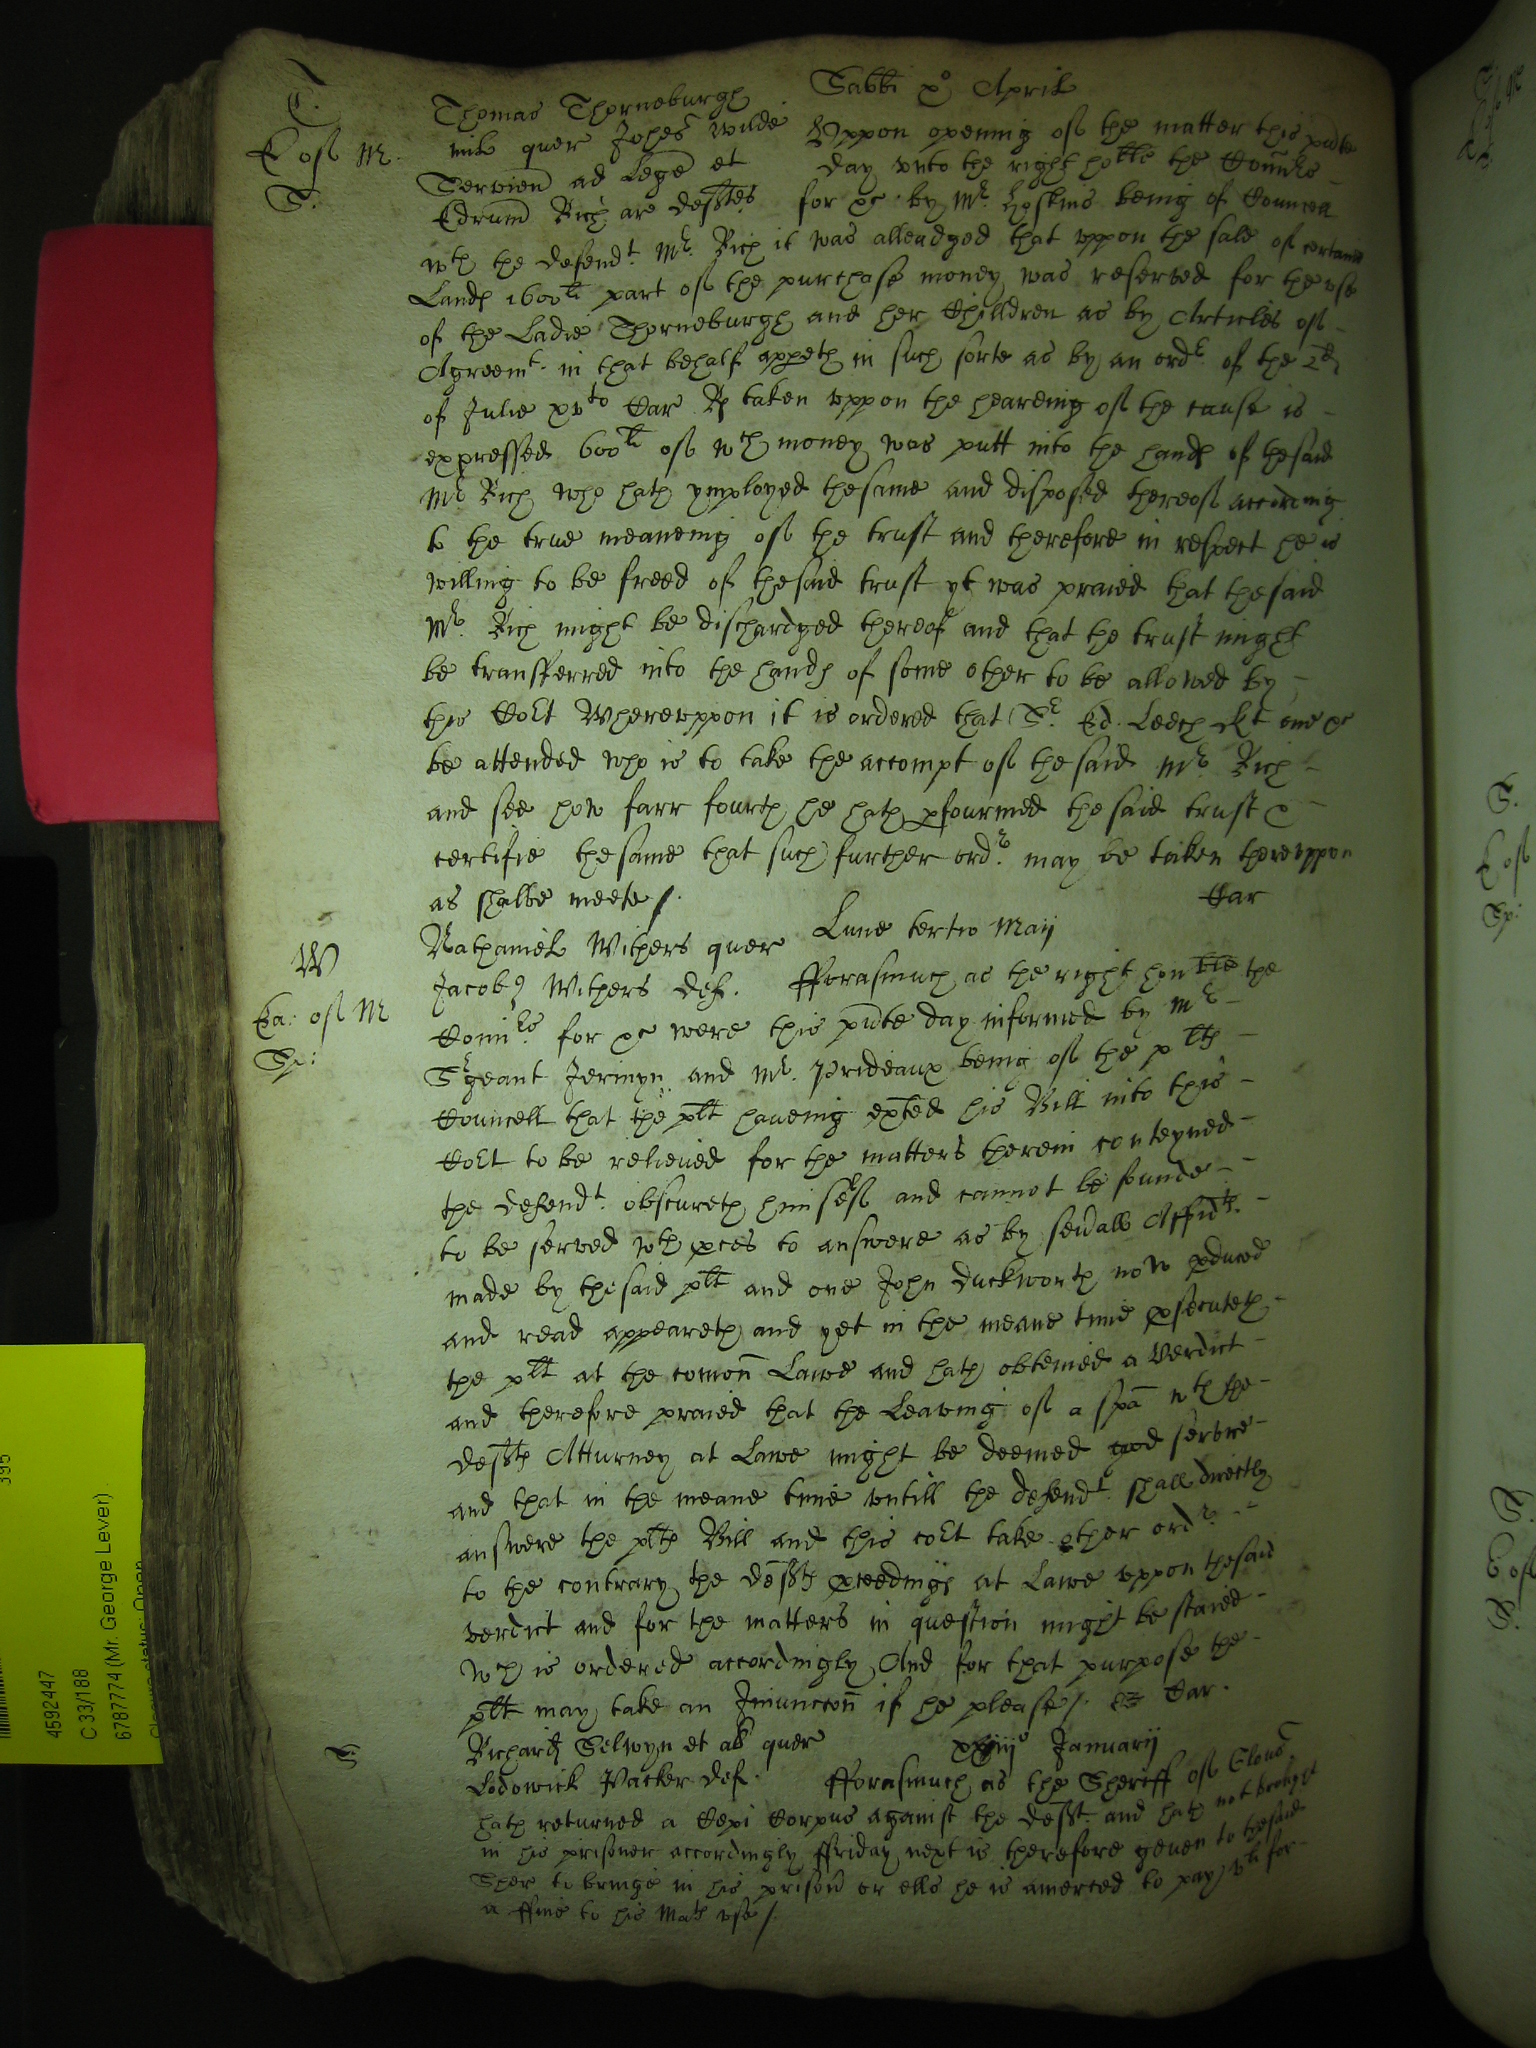 T.
E of M.
S.
Thomas Thorneburgh
mil quer Johes Wilde
Servien ad Lege et
Edrum Rich ar defftes
Sabbi xº April
Uppon openinge of the matter this pnte
day vnto the right hoble the Comrs
for &c by Mr. Hoskins being of Councell
wth the defendt. Mr. Rich it was alleadged that vppon the sale of certaine
Lands 1600li part of the purchase money was reserved for the vse
of the Ladie Thorneburgh and her Children as by Articles of
Agreemt. in that behalf appeth in such sorte as by an ordr of the
of Julie xvto Car R taken vppon the heareing of the cause is
expressed 600li of wch money was putt into the hands of thesaid
Mr Rich who hath ymployed thesame and disposed thereof according
to the true meaneing of the trust and therefore in respect he is
willing to be freed of thesaid trust yt was praied that thesaid
Mr. Rich might be dischardged thereof and that the trust might
be transferred into the hands of some other to be allowed by
this Cort Whereuppon it is ordered that Sr. Ed. Leech kt one &c
be attended who is to take the accompt of the said Mr. Rich
and see how farr fourth he hath pfourmed the said trust &
certifie thesame that such further ordr. may be taken thereuppon
as shalbe meete /.
Car
W
Ea: of M
Sp:
Nathaniel Withers quer
Jacobs Withers def.
Lune tertio Maij
fforasmuch as the right honble the
Comrs. for &c were this pnte day informed by Mr
Srgeant Jermyn and Mr. Prideaux being of the plts
Councell that the plt haueing exted his Bill into this
Cort to be relieued for the matters therein conteyned
the defendt. obscureth himself and cannot be founde
to be served wth pces to answere as by seuall Affidts.
made by thesaid plt and one John Duckworth now pduced
and read appeareth and yet in the meane time psecuteth
the plt at the comon Lawe and hath obteined a Verdict
and therefore praied that the Leaving of a spa wth the
deffts Atturney at Lawe might be deemed good service
and that in the meane time vntill the defendt. shall directly
answere the plts Bill and this cort take other ordr.
to the contrary the deffts pceedings at Lawe vppon thesaid
verdict and for the matters in question might be staied
wch is ordered accordingly And for that purpose the
plt may take an Iniunccon if he please /. Car.
S.
Richard Selwyn et al quer
Lodowick Packer def.
xxiiijº Januarij
fforasmuch as the Sheriff of Glouc
hath returned a Cepi Corpus against the defft. and hath not brought
in his prisoner accordingly ffriday next is therefore geuen to thesaid
Sher to bringe in his prison or ells he is amerced to pay vli for
a ffine to his Mats vse /.
395
4592447
C 33/188
6787774 (Mr. George Lever)
S.
E of
Sp: